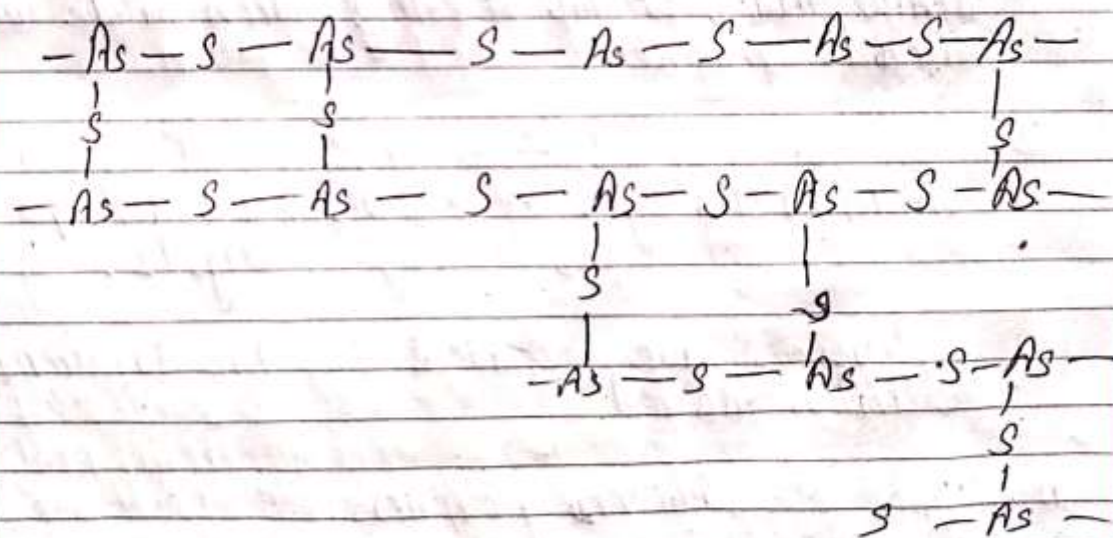 - As - S - As - S - As - S - As - S - As -
S S S
- As - S - As - S - As - S - As - S - As -
S S
- As - S - As - S - As -
S
S - As -